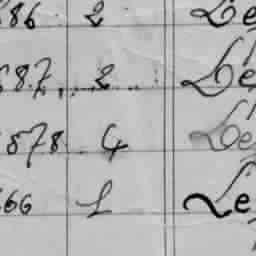 86 2 Le
687 2 Lé
878 4 Le
66 1 Le